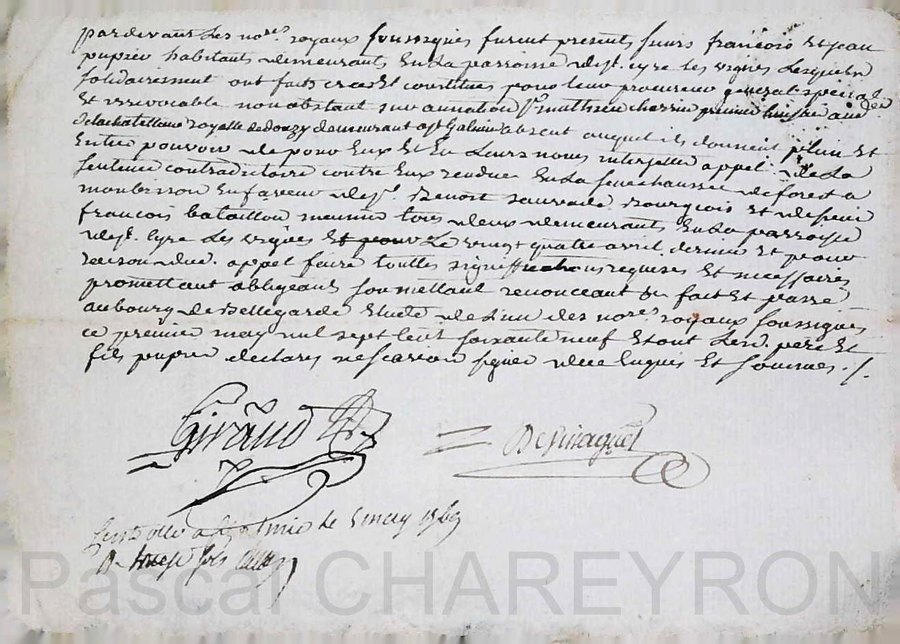 pardevant Les no.res royaux soussignés furent presents sieurs françois Et jean
pupier habitants demeurants En La parroisse de st. cyre les vignes Lesquels
solidairement ont faits créés Et constitués pour leur procureur general special
Et irrevocable nonobstant sur annation Sr. mathieu premier huissier aud
De la chatellanie royalle de donzy demeurant a st Galmier absent auquel ils donnent plein Et
Entier pouvoir de pour Eux Et En Leurs noms interjetter appel de La
sentence contradictoire contre Eux rendue En La senechaussée de forest a
montbrison En faveur de sr. Benoit Bourgeois Et de sieur
françois bataillon meunier tous deux demeurants En La parroisse
de st. Cyre Les vignes Et pour Le vingt quatre avril dernier Et pour
raison dud. appel faire touttes significations requises Et necessaires
promettant obligeant soumettant renonceant &. fait Et passé
au bourg de Bellegarde Etude de L'un des no.res royaux soussignés
ce premier may mil sept cent soixante neuf Et ont Lesd. pere Et
fils pupier declarés ne scavoir signer de ce Enquis Et sommés ./.
Giraud
Desiraques
a st Galmier le 5 may 1769
Pascal CHAREYRON